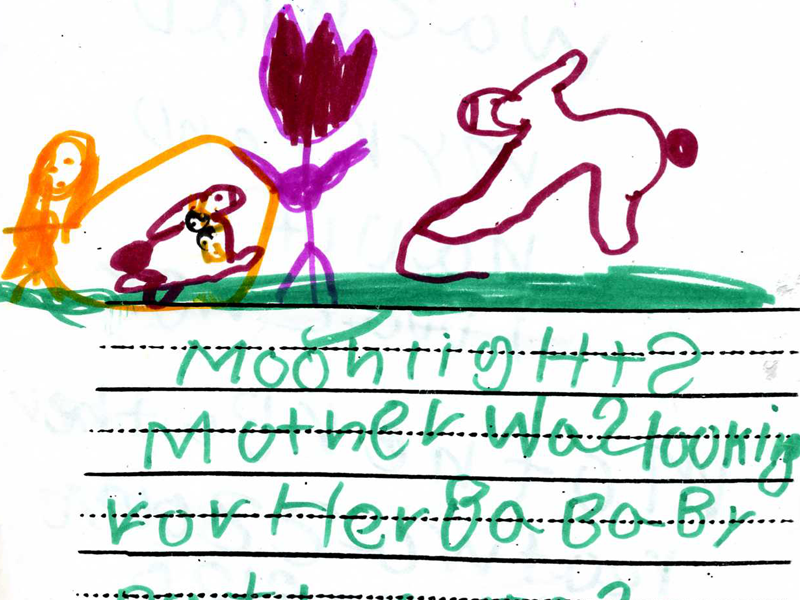 MoonlightS
Mother WaS looking
For Her Ba BaBy